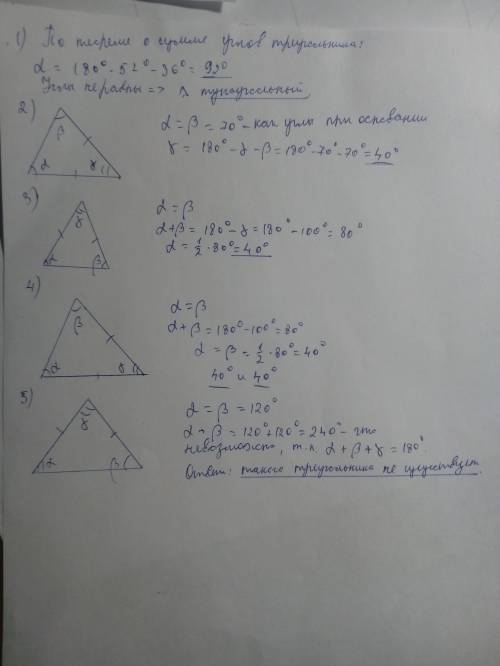 1) По теореме о сумме углов треугольника:
α = 180° - 52° - 36° = 92°
Углы не равны => Δ тупоугольный
2)
β
α
γ
α = β = 70° - как углы при основании
γ = 180° - α - β = 180° - 70° - 70° = 40°
3)
γ
α
β
α = β
α + β = 180° - γ = 180° - 100° = 80°
α = 1/2 · 80° = 40°
4)
β
α
γ
α = β
α + β = 180° - 100° = 80°
α = β = 1/2 · 80° = 40°
40° и 40°
5)
γ
α
β
α = β = 120°
α + β = 120° + 120° = 240° - что
невозможно, т.к. α + β + γ = 180°.
Ответ: такого треугольника не существует.